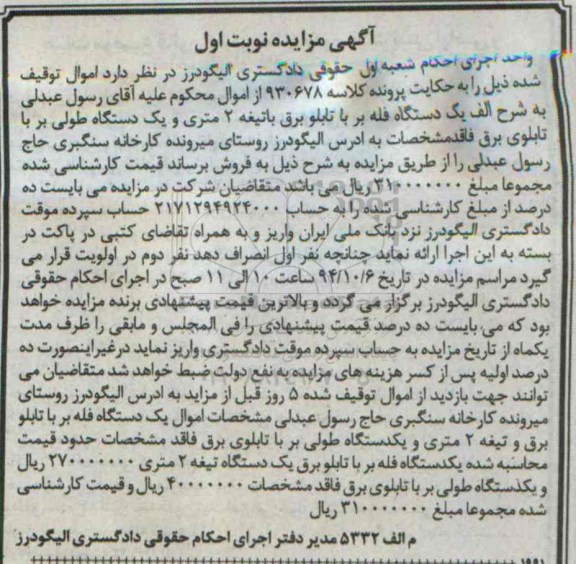 آگهی مزایده نوبت اول
واحد اجرای احکام شعبه اول حقوقی دادگستری الیگودرز در نظر دارد اموال توقیف
شده ذیل را به حکایت پرونده کلاسه ۹۳۰۶۷۸ از اموال محکوم علیه آقای رسول عبدلی
به شرح الف یک دستگاه فله بر با تابلو برق باتیغه ۲ متری و یک دستگاه طولی بر با
تابلوی برق فاقدمشخصات به ادرس الیگودرز روستای میرونده کارخانه سنگبری حاج
رسول عبدلی را از طریق مزایده به شرح ذیل به فروش برساند قیمت کارشناسی شده
مجموعا مبلغ ۳۱۰۰۰۰۰۰۰ ریال می باشد متقاضیان شرکت در مزایده می بایست ده
درصد از مبلغ کارشناسی شده را به حساب ۲۱۷۱۲۹۴۹۲۴۰۰۰ حساب سپرده موقت
دادگستری الیگودرز نزد بانک ملی ایران واریز و به همراه تقاضای کتبی در پاکت در
بسته به این اجرا ارائه نماید چنانچه نفر اول انصراف دهد نفر دوم در اولویت قرار می
گیرد مراسم مزایده در تاریخ ۹۴/۱۰/۶ ساعت ۱۰ الی ۱۱ صبح در اجرای احکام حقوقی
دادگستری الیگودرز برگزار می گردد و بالاترین قیمت پیشنهادی برنده مزایده خواهد
بود که می بایست ده درصد قیمت پیشنهادی را فی المجلس و مابقی را ظرف مدت
یکماه از تاریخ مزایده به حساب سپرده موقت دادگستری واریز نماید درغیراینصورت ده
درصد اولیه پس از کسر هزینه های مزایده به نفع دولت ضبط خواهد شد متقاضیان می
توانند جهت بازدید از اموال توقیف شده ۵ روز قبل از مزاید به ادرس الیگودرز روستای
میرونده کارخانه سنگبری حاج رسول عبدلی مشخصات اموال یک دستگاه فله بر با تابلو
برق و تیغه ۲ متری و یکدستگاه طولی بر با تابلوی برق فاقد مشخصات حدود قیمت
محاسبه شده یکدستگاه فله بر با تابلو برق یک دستگاه تیغه ۲ متری ۲۷۰۰۰۰۰۰۰ ریال
و یکدستگاه طولی بر با تابلوی برق فاقد مشخصات ۴۰۰۰۰۰۰۰ ریال و قیمت کارشناسی
شده مجموعا مبلغ ۳۱۰۰۰۰۰۰۰ ریال
م الف ۵۳۳۲ مدیر دفتر اجرای احکام حقوقی دادگستری الیگودرز